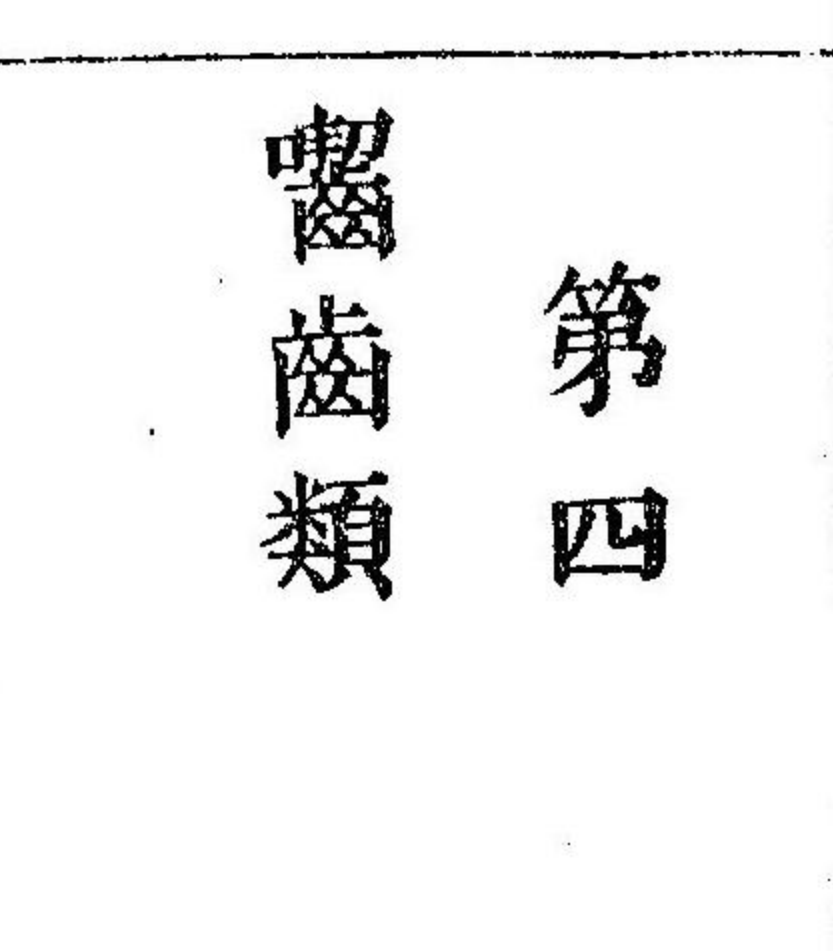 第四
囓齒類